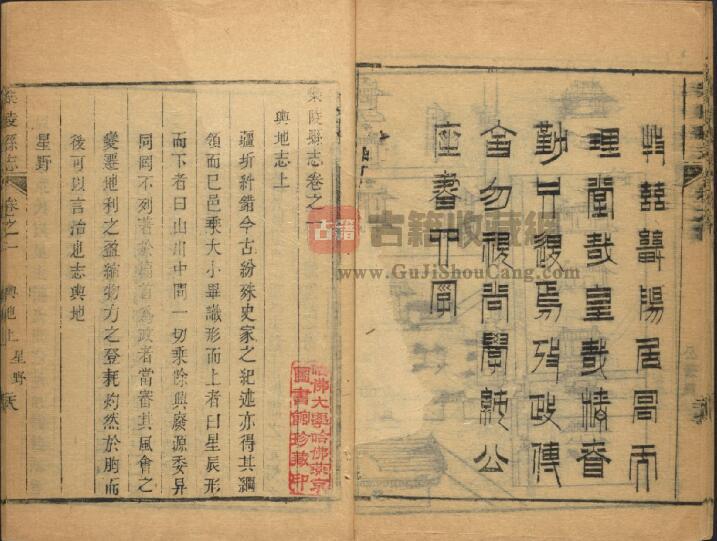 居高而
理堂哉皇哉
勤
政傳
舍勿視問學純公
座書
樂陵縣志卷之
輿地志上
疆圻糾錯今古紛殊史家之紀述亦得其綱
領而已邑乘大小畢識形而上者曰星辰形
而下者曰山川中間一切乘除興廢源委昇
同罔不列著於篇首為政者當審其風會之
變遷地利之盈縮物方之登耗灼然於胸而
後可以言治也志輿地
星野
樂陵縣志 卷之一 輿地上 星野
哈佛大學哈佛燕京
圖書館珍藏印
古籍 古籍收藏網
www.GuJiShouCang.com